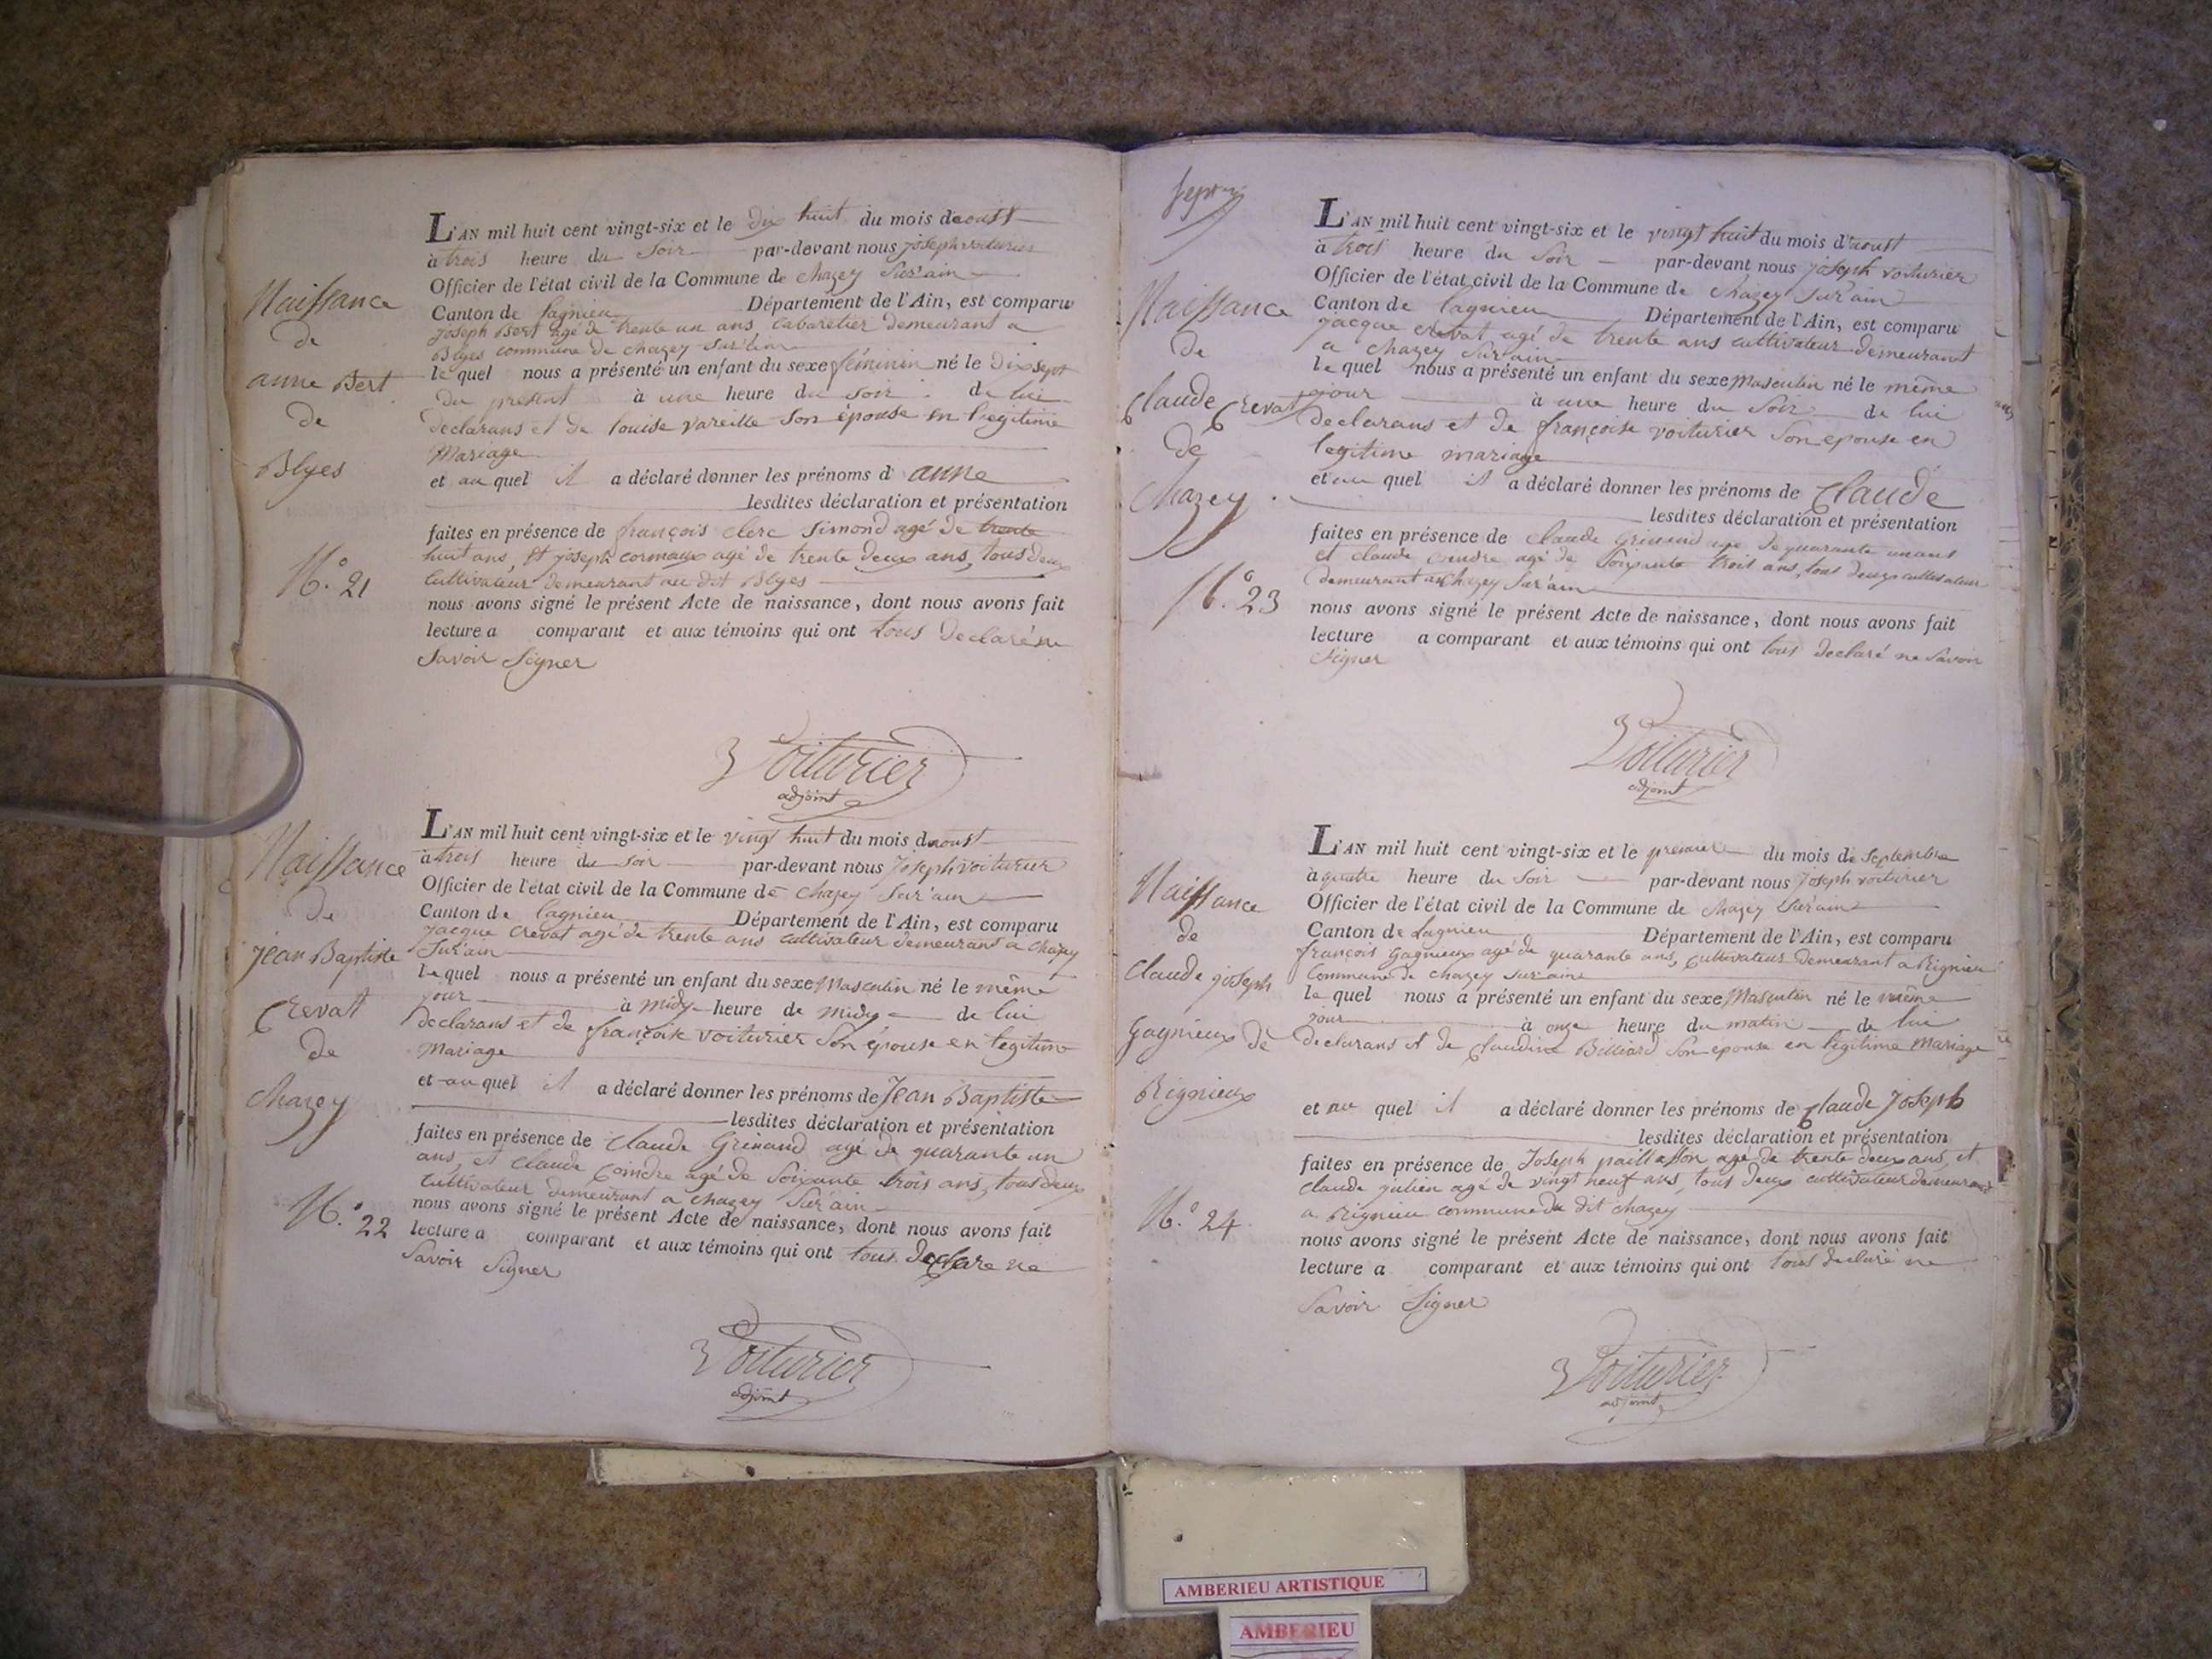 Naissance
de
anne Bert
de
Blyes
N.º 21
L'AN mil huit cent vingt-six et le dix huit du mois d'aoust
à trois heure du Soir par-devant nous Joseph voiturier
Officier de l'état civil de la Commune de chazey Sur'ain
Canton de lagnieu Département de l'Ain, est comparu
Joseph Bert agé de trente un ans, cabaretier demeurant a
Blyes commune de chazey Sur'ain
le quel nous a présenté un enfant du sexe féminin né le dix sept
du présent à une heure du Soir de lui
declarans et de louise vareille Son épouse en legitime
Mariage
et au quel il a déclaré donner les prénoms d' anne
lesdites déclaration et présentation
faites en présence de françois clerc Simond agé de trente
huit ans, et joseph cormaux agé de trente deux ans, tous deux
cultivateur demeurant au dit Blyes
nous avons signé le présent Acte de naissance, dont nous avons fait
lecture a comparant et aux témoins qui ont tous declaré ne
Savoir Signer
Voiturier
adjoint
Naissance
de
jean Baptiste
Crevat
de
Chazey
N.º 22
L'AN mil huit cent vingt-six et le vingt huit du mois d'aoust
à trois heure du soir par-devant nous Joseph voiturier
Officier de l'état civil de la Commune de chazey Sur'ain
Canton de lagnieu Département de l'Ain, est comparu
jacque crevat agé de trente ans cultivateur demeurant a chazey
Sur'ain
le quel nous a présenté un enfant du sexe Masculin né le même
jour à midy heure de midy de lui
declarans et de françoise voiturier Son épouse en legitime
Mariage
et au quel il a déclaré donner les prénoms de Jean Baptiste
lesdites déclaration et présentation
faites en présence de Claude Grinand agé de quarante un
ans, et claude Coindre agé de Soixante trois ans, tous deux
cultivateur demeurant a chazey Sur'ain
nous avons signé le présent Acte de naissance, dont nous avons fait
lecture a comparant et aux témoins qui ont tous declare ne
Savoir Signer
Voiturier
adjoint
Naissance
de
Claude Crevat
de
Chazey
N.º 23
L'AN mil huit cent vingt-six et le vingt huit du mois d'aoust
à trois heure du Soir par-devant nous joseph voiturier
Officier de l'état civil de la Commune de chazey Sur'ain
Canton de lagnieu Département de l'Ain, est comparu
jacque crevat agé de trente ans cultivateur demeurant
a chazey Sur'ain
le quel nous a présenté un enfant du sexe Masculin né le même
jour à une heure du Soir de lui
declarans et de françoise voiturier Son epouse en
legitime mariage
et au quel il a déclaré donner les prénoms de Claude
lesdites déclaration et présentation
faites en présence de claude Grinand agé de quarante un ans
et claude coindre agé de Soixante trois ans, tous deux cultivateur
demeurant a chazey Sur'ain
nous avons signé le présent Acte de naissance, dont nous avons fait
lecture a comparant et aux témoins qui ont tous declaré ne Savoir
Signer
Voiturier
adjoint
Naissance
de
Claude joseph
Gagnieux de
Rignieux
N.º 24
L'AN mil huit cent vingt-six et le premier du mois de Septembre
à quatre heure du Soir par-devant nous Joseph voiturier
Officier de l'état civil de la Commune de chazey Sur'ain
Canton de Lagnieu Département de l'Ain, est comparu
françois Gagnieux agé de quarante ans, cultivateur demeurant a Rignieu
Commune de chazey Sur'ain
le quel nous a présenté un enfant du sexe Masculin né le même
jour à onze heure du matin de lui
declarans et de Claudine Billiard Son épouse en legitime Mariage
et au quel il a déclaré donner les prénoms de Claude Joseph
lesdites déclaration et présentation
faites en présence de Joseph paillasson agé de trente deux ans, et
Claude julien agé de vingt neuf ans, tous deux cultivateur demeurant
a Rignieu commune du dit chazey
nous avons signé le présent Acte de naissance, dont nous avons fait
lecture a comparant et aux témoins qui ont tous declaré ne
Savoir Signer
Voiturier
adjoint
AMBERIEU ARTISTIQUE
AMBERIEU